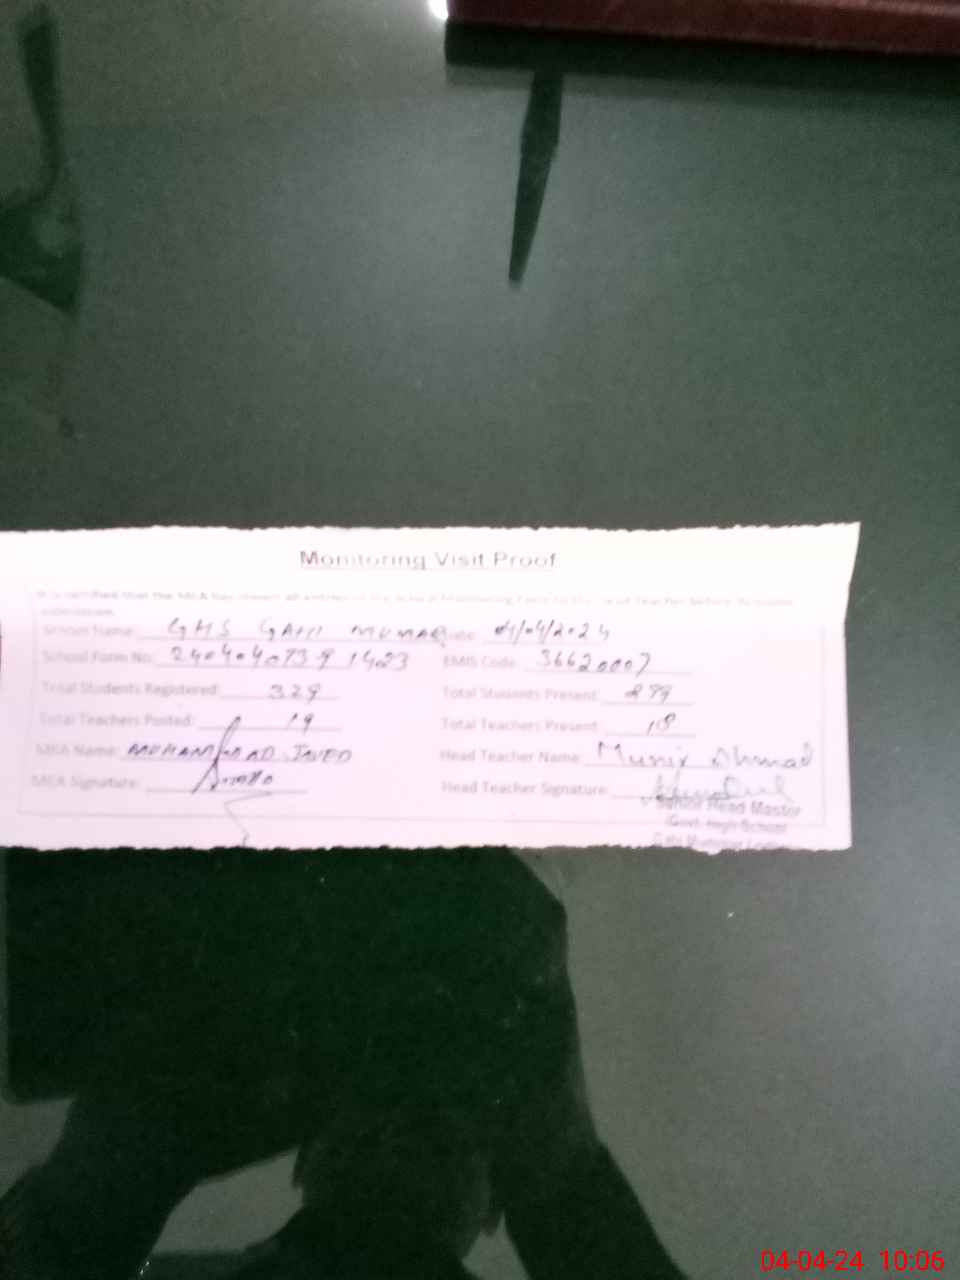 Monitoring Visit Proof
It is certified that the MEA has shown all entries of the School Monitoring Form to the Head Teacher before its
submission.
School Name: GHS GAHI MUMAR Date: 04/04/2024
School Form No: EMIS Code: 36620007
Total Students Registered: 329 Total Students Present: 299
Total Teachers Posted: 19 Total Teachers Present: 18
MEA Name: MUHAMMAD JAVED Head Teacher Name: Munir Ahmad
MEA Signature: Head Teacher Signature:
Senior Head Master
Govt. High School
Gahi Mummar
04-04-24 10:06